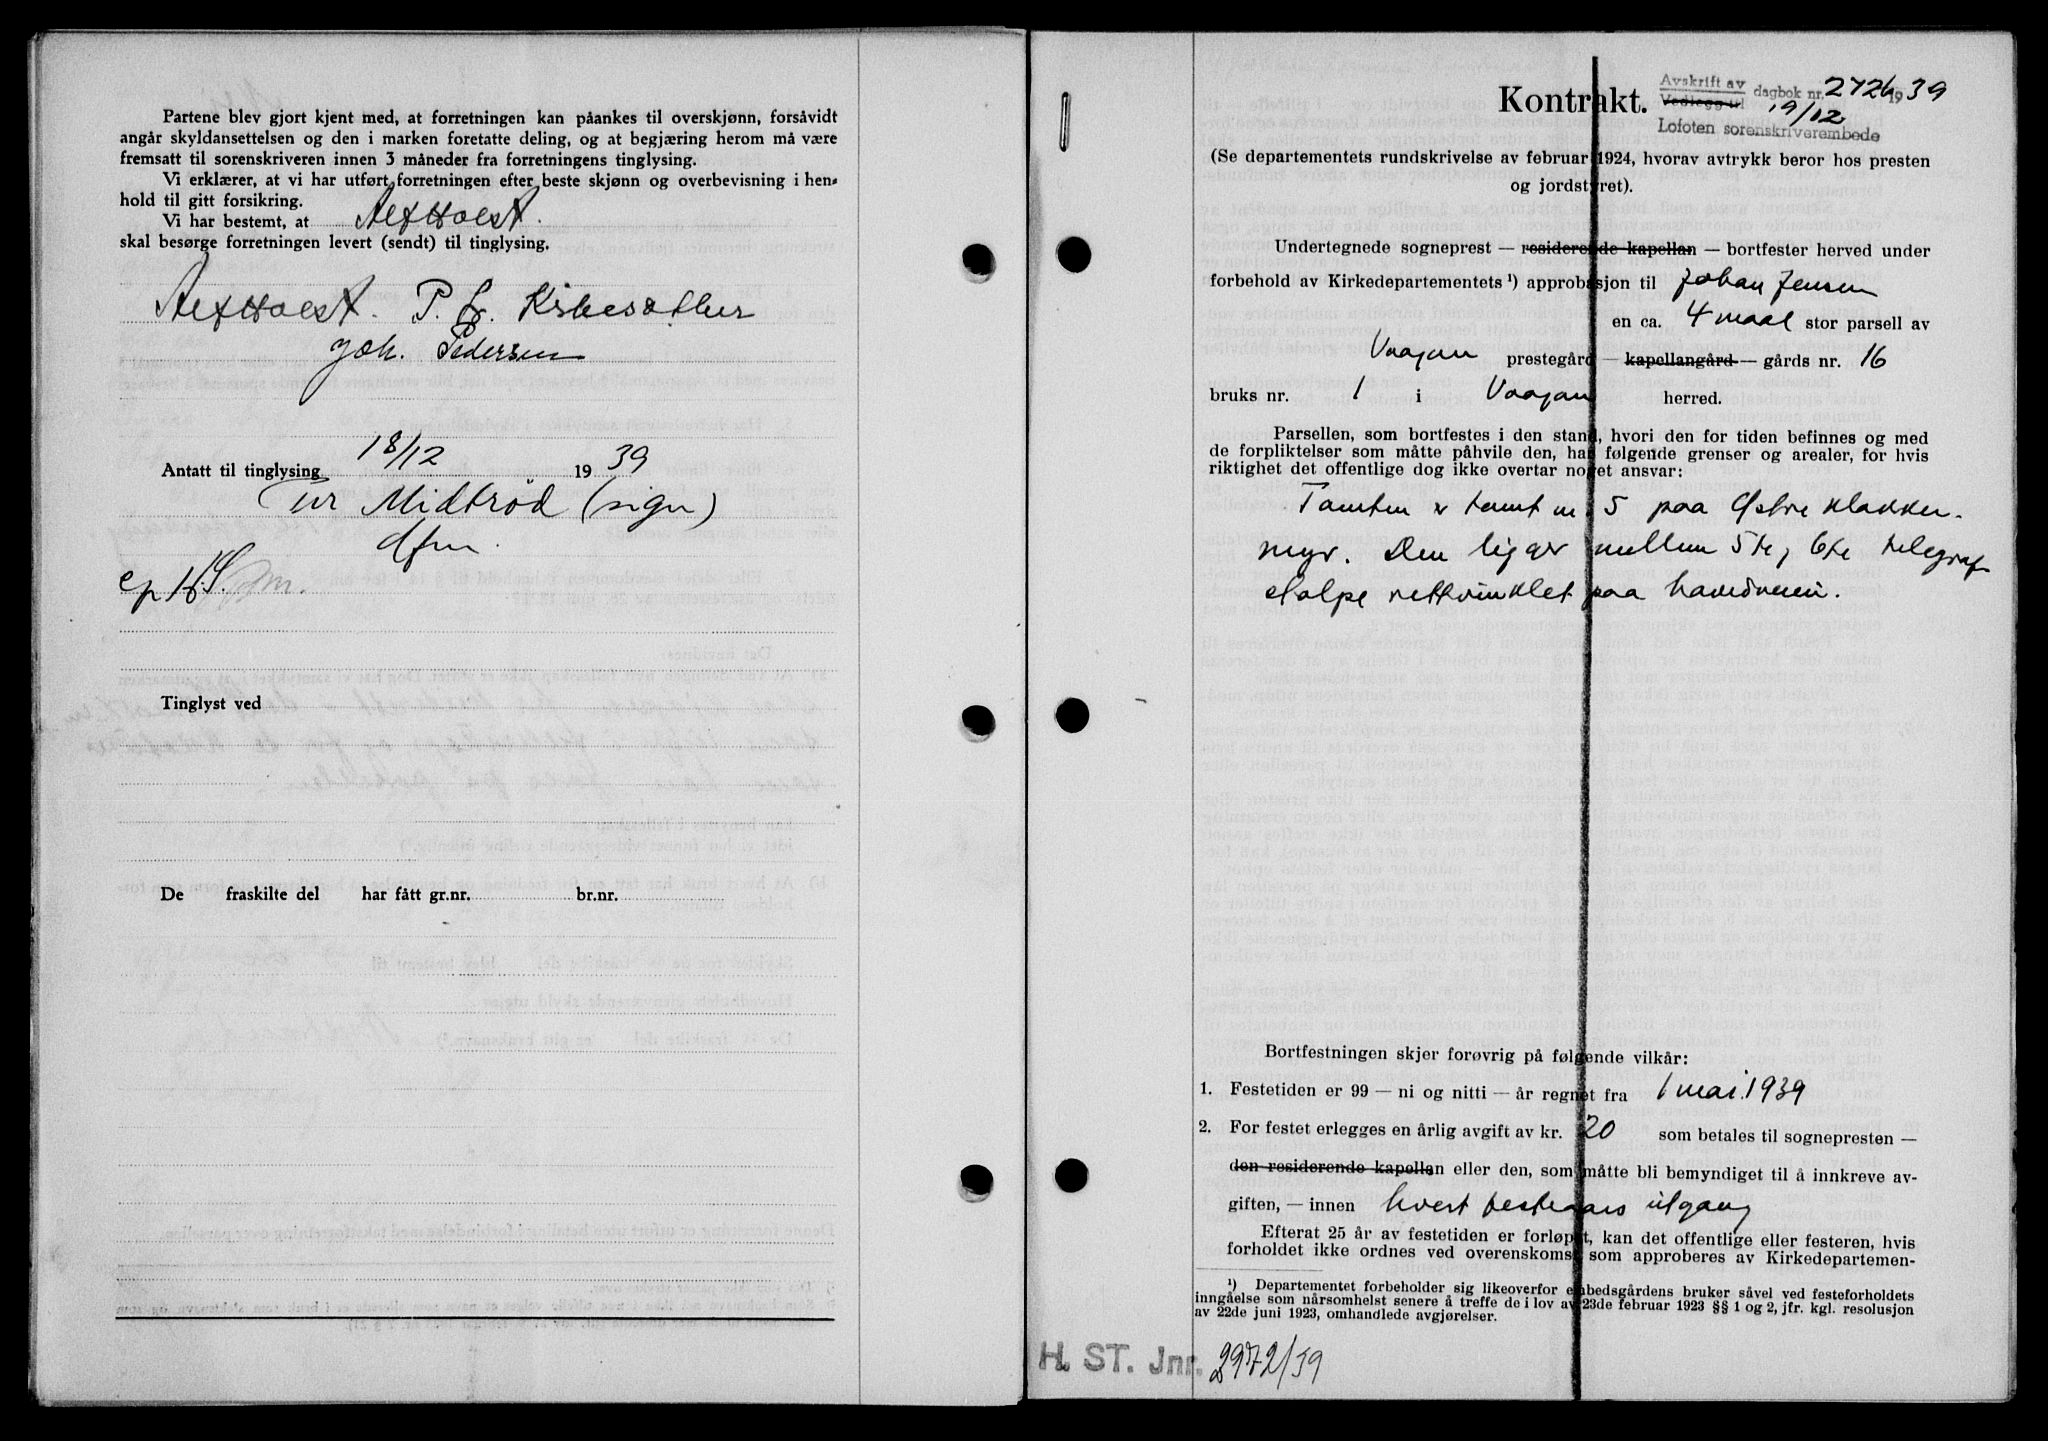 Partene blev gjort kjent med, at forretningen kan påankes til overskjønn, forsåvidt
angår skyldansettelsen og den i marken foretatte deling, og at begjæring herom må være
fremsatt til sorenskriveren innen 3 måneder fra forretningens tinglysing.
Vi erklærer, at vi har utført forretningen efter beste skjønn og overbevisning i hen-
hold til gitt forsikring.
Vi har bestemt, at Alf Holst.
skal besørge forretningen levert (sendt) til tinglysing.
Alf Holst. P. Kirkesæther
Joh. Pedersen
Antatt til tinglysing 18/12 1939
Tur Midtrød (sign)
dfm.
Tinglyst ved
De fraskilte del har fått gr.nr. br.nr.
Kontrakt.
Avskrift av
Vedlegg til
dagbok nr. 2726 1939
19/12
Lofoten sorenskriverembede
(Se departementets rundskrivelse av februar 1924, hvorav avtrykk beror hos presten
og jordstyret).
Undertegnede sogneprest — residerende kapellan — bortfester herved under
forbehold av Kirkedepartementets ¹) approbasjon til Johan Jensen
en ca. 4 maal stor parsell av
Vaagan prestegård — kapellangård — gårds nr. 16
bruks nr. 1 i Vaagan herred.
Parsellen, som bortfestes i den stand, hvori den for tiden befinnes og med
de forpliktelser som måtte påhvile den, har følgende grenser og arealer, for hvis
riktighet det offentlige dog ikke overtar noget ansvar:
Tomten er tomt nr 5 paa Østre Klakke-
myr. Den ligger mellem 5te, 6te telegraf
stolpe rettvinklet paa hovedveien.
Bortfestningen skjer forøvrig på følgende vilkår:
1. Festetiden er 99 — ni og nitti — år regnet fra 1 mai 1939
2. For festet erlegges en årlig avgift av kr. 20 som betales til sognepresten —
den residerende kapellan eller den, som måtte bli bemyndiget til å innkreve av-
giften, — innen hvert festeaars utgang
Efterat 25 år av festetiden er forløpet, kan det offentlige eller festeren, hvis
forholdet ikke ordnes ved overenskomst som approberes av Kirkedepartemen-
¹) Departementet forbeholder sig likeoverfor embedsgårdens bruker såvel ved festeforholdets
inngåelse som nårsomhelst senere å treffe de i lov av 23de februar 1923 §§ 1 og 2, jfr. kgl. resolusjon
av 22de juni 1923, omhandlede avgjørelser.
H. ST. Jnr. 2972/39